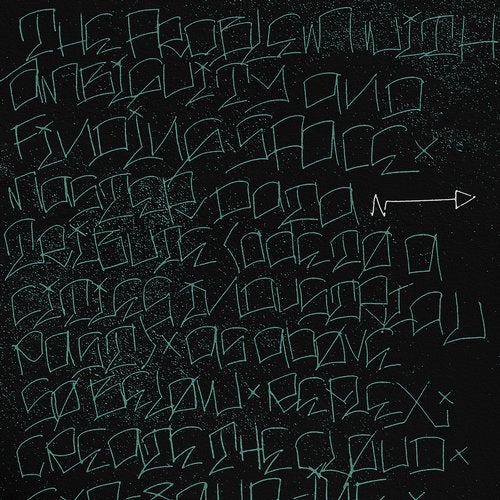 THE PROBLEM WITH
AMBIGUITY AND
FINDING SPACE x
MASTER DATA
TRIBUTE (ODE TO A
CITIES INDUSTRIAL
PAST) x AS ABOVE
SO BELOW x REPLEX
CREATE THE CLOUD x